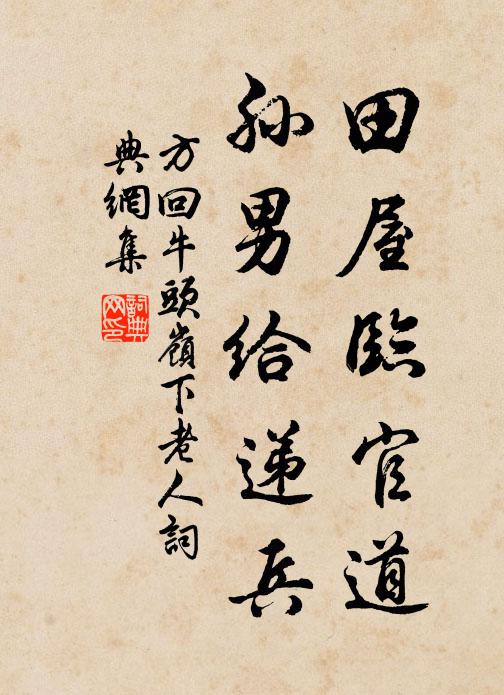 田屋臨官道
孫男給遞兵
方回牛頭嶺下老人詞
典網集
詞典網印